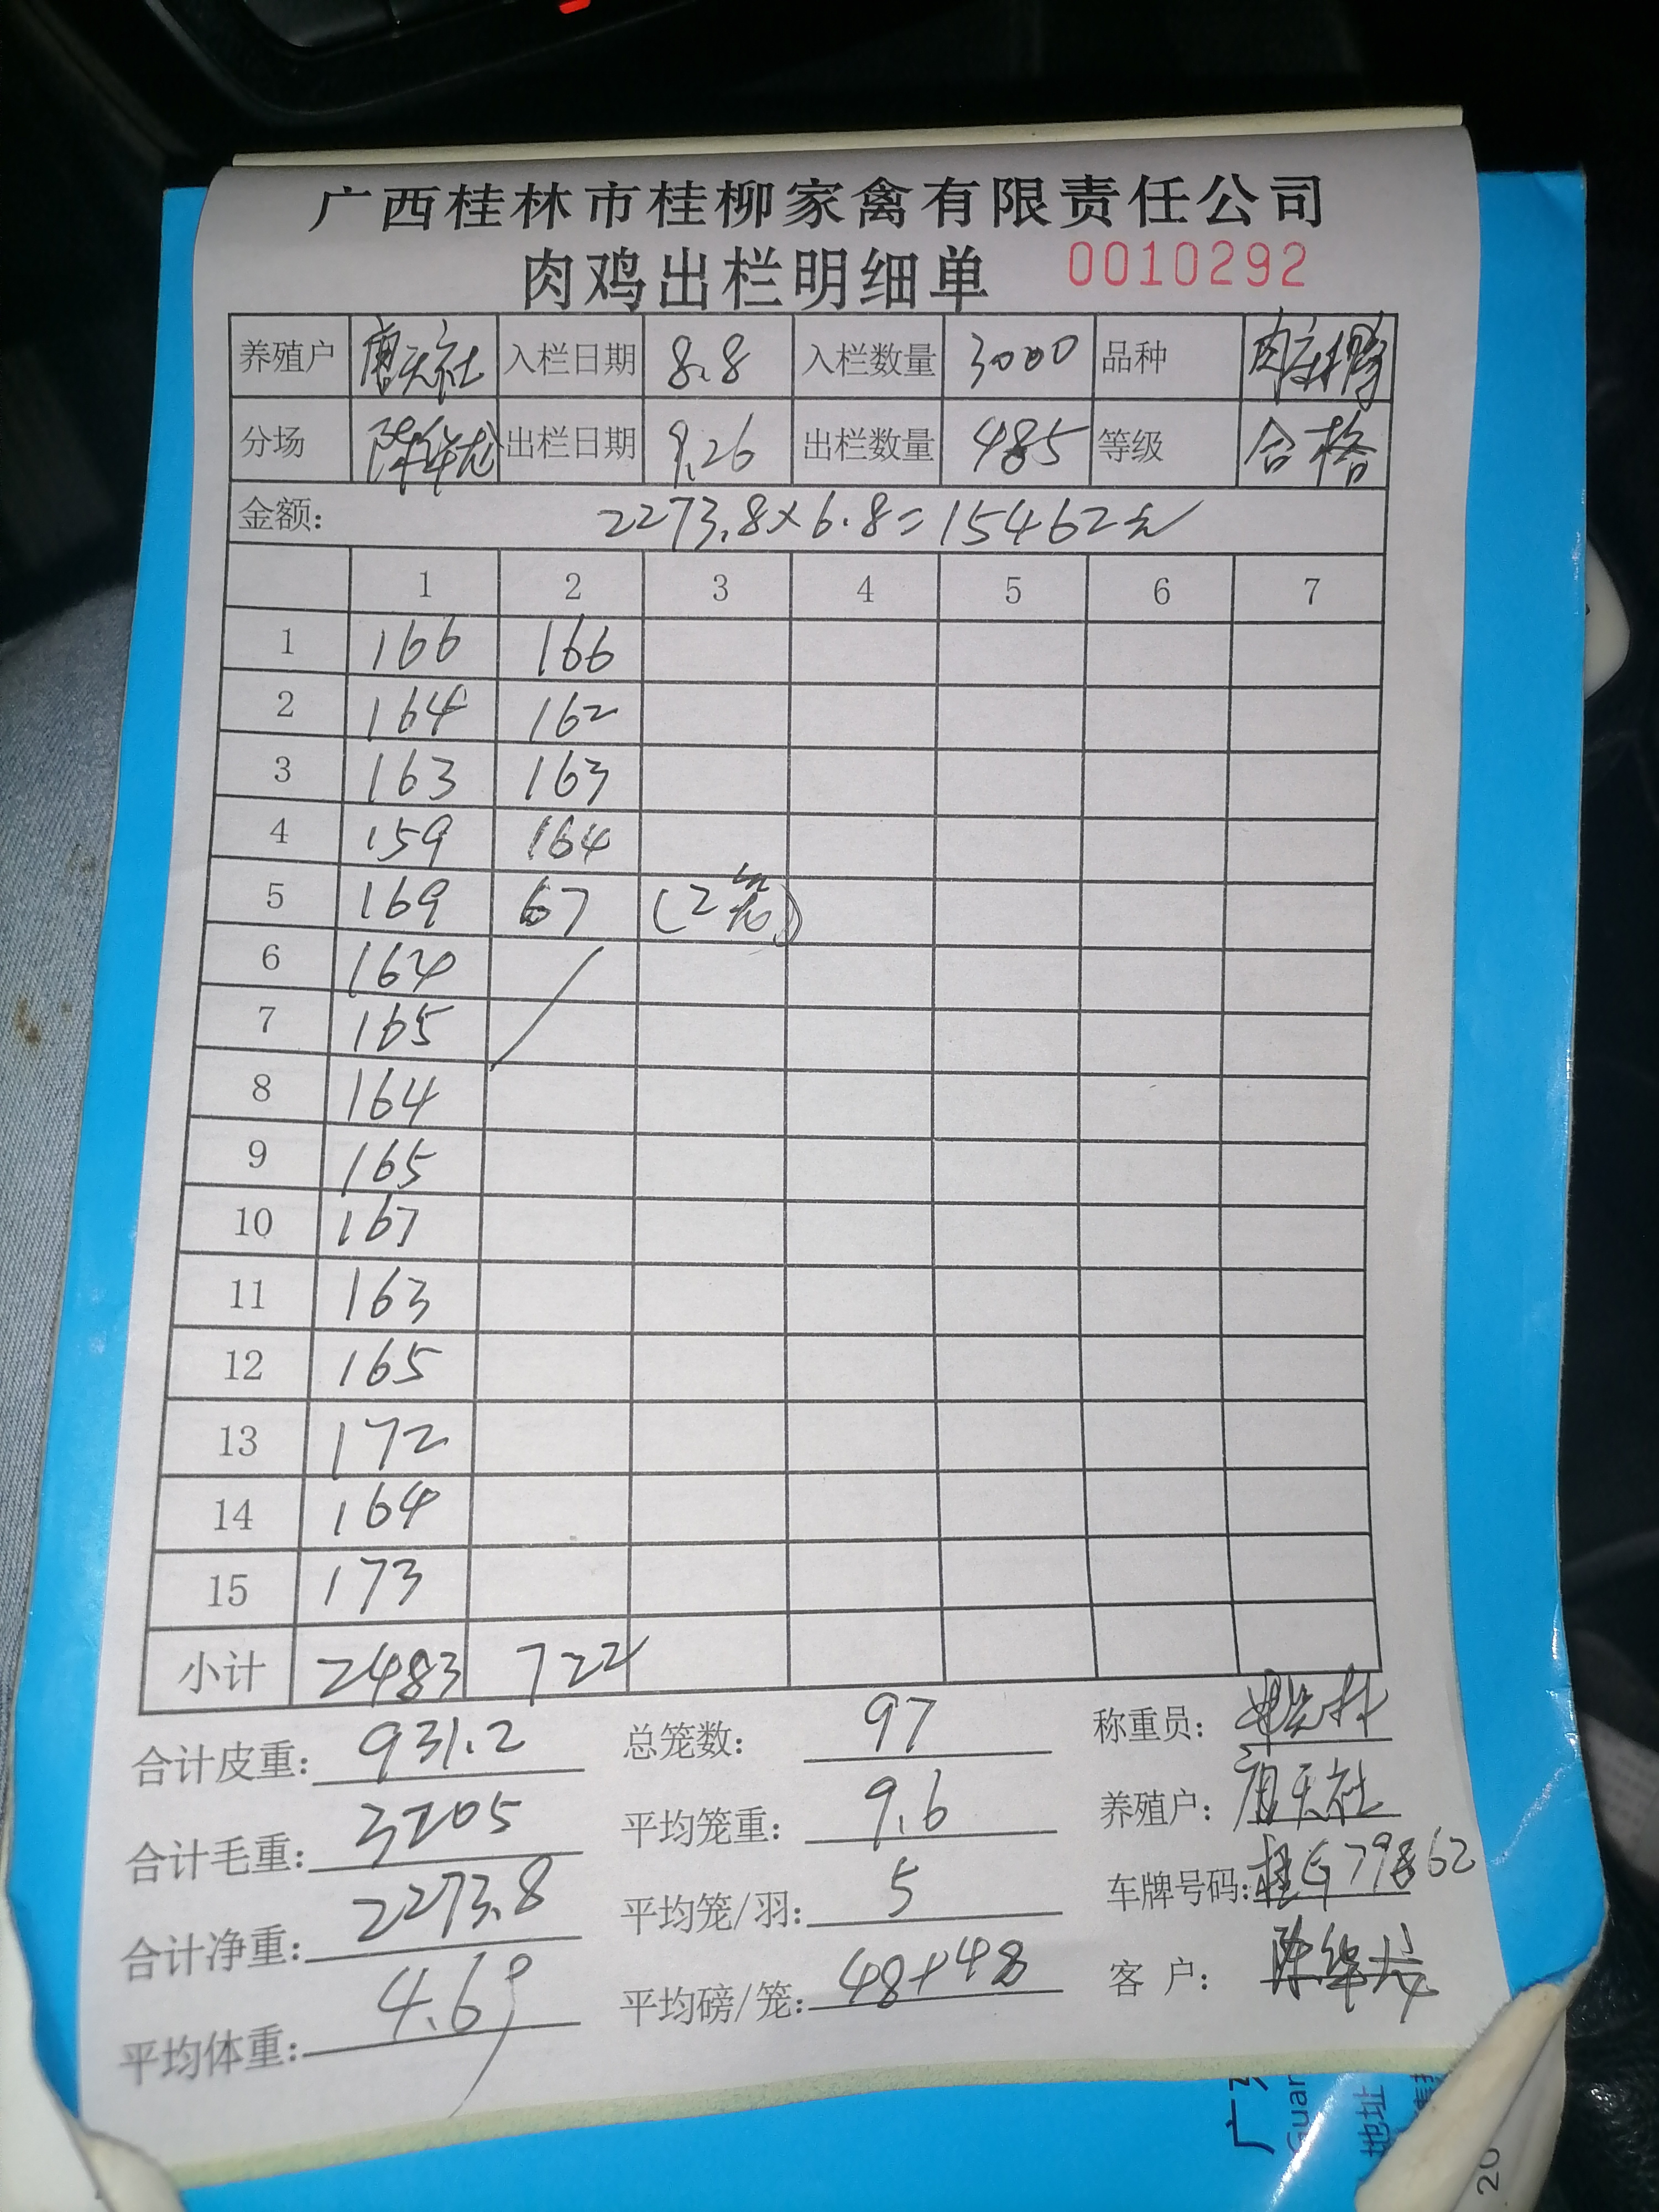 广西桂林市桂柳家禽有限责任公司
肉鸡出栏明细单 0010292
养殖户 唐天社 入栏日期 8.8 入栏数量 3000 品种
分场 陈华龙 出栏日期 9.26 出栏数量 485 等级 合格
金额: 2273.8×6.8=15462元
1 2 3 4 5 6 7
1 166 166
2 164 162
3 163 163
4 159 164
5 169 67 (2笼)
6 164
7 165
8 164
9 165
10 167
11 163
12 165
13 172
14 164
15 173
小计 2483 722
合计皮重: 931.2 总笼数: 97 称重员:
合计毛重: 3205 平均笼重: 9.6 养殖户: 唐天社
合计净重: 2273.8 平均笼/羽: 5 车牌号码: 桂G79862
平均体重: 4.69 平均磅/笼: 48+48 客 户: 陈华龙
广
Guan
地址
20